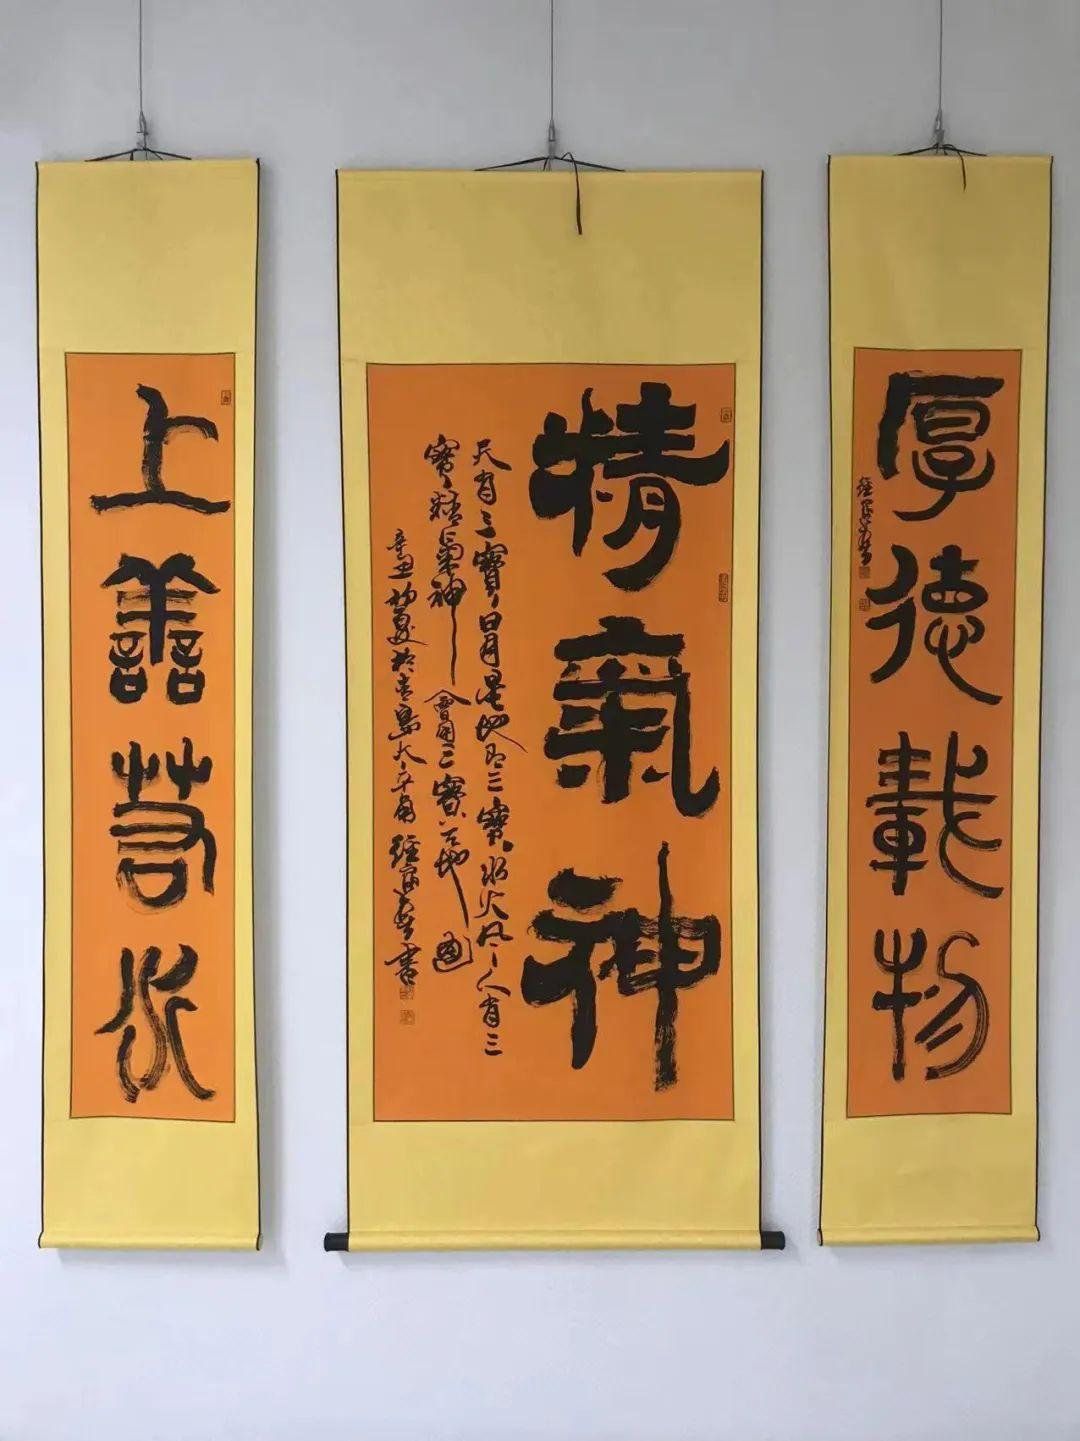 厚德載物
精氣神
天有三寶日月星地有三寶水火風人有三
寶精氣神會用三寶天地通
辛丑初夏於青島書
上善若水